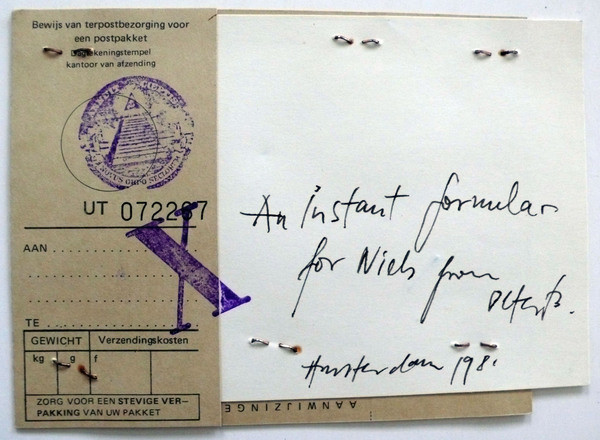 Bewijs van terpostbezorging voor
een postpakket
Dagtekeningstempel
kantoor van afzending
NOVUS ORDO SECLORUM
UT 072287
AAN
TE
GEWICHT Verzendingskosten
kg g f
ZORG VOOR EEN STEVIGE VER-
PAKKING VAN UW PAKKET
X
An instant formular
for Niels from
Amsterdam 198
AANWIJZINGE